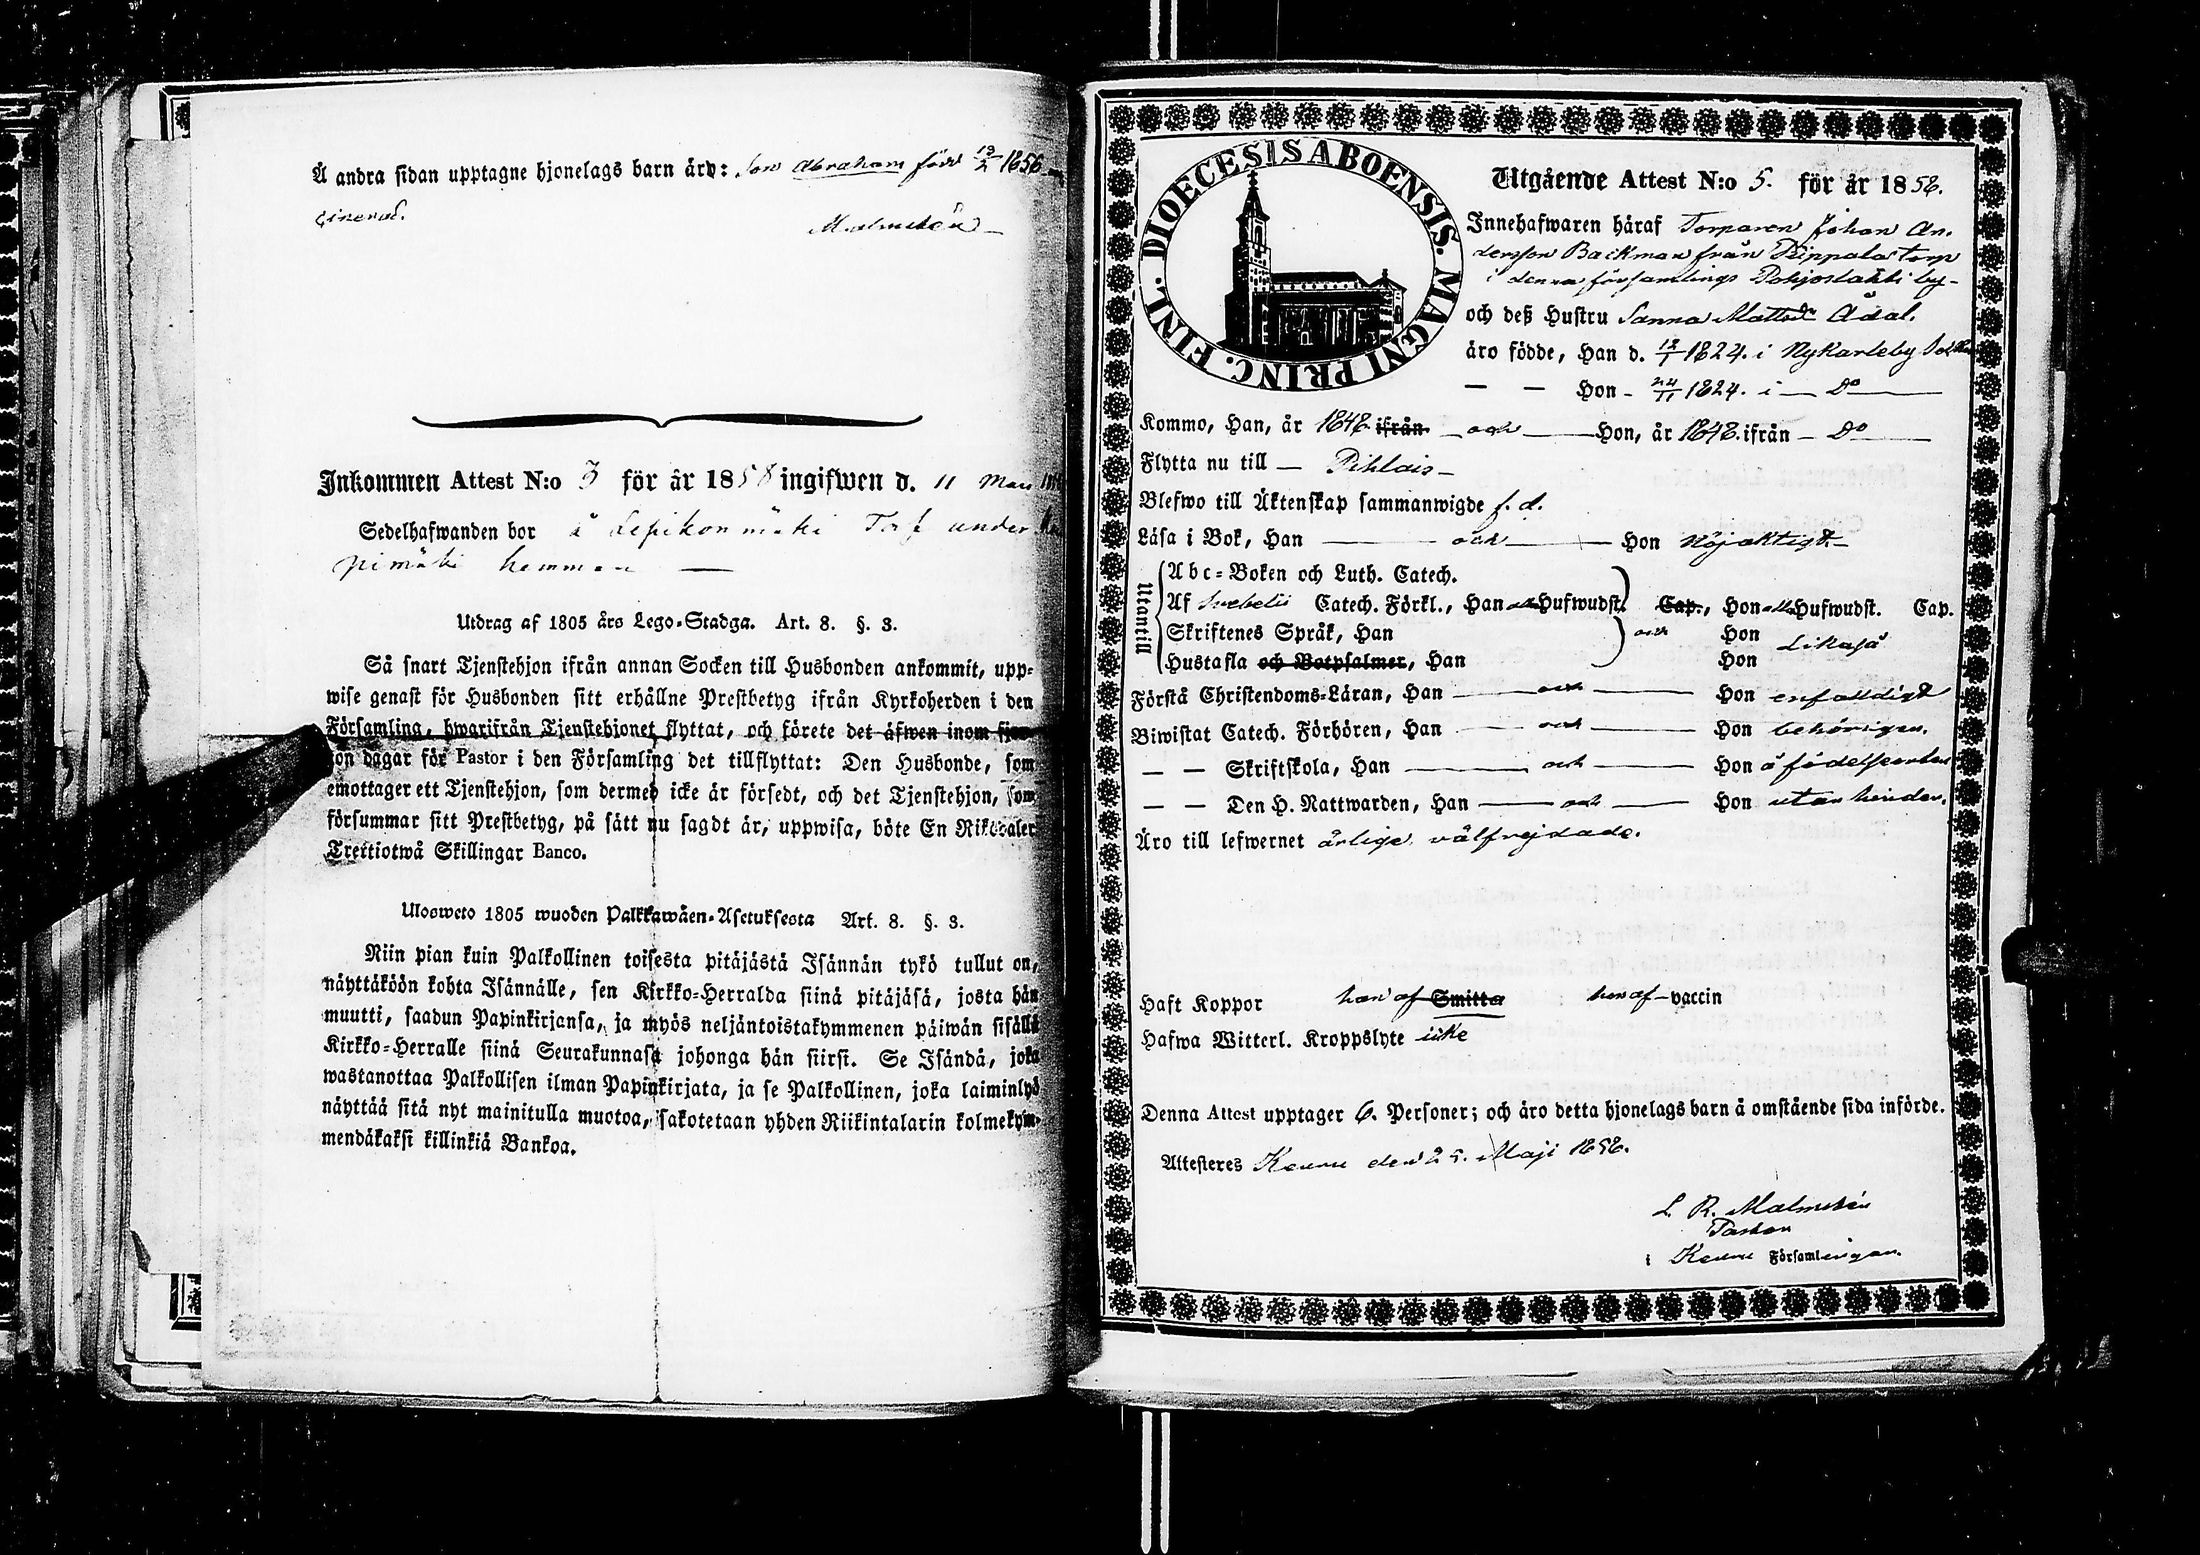 Å andra sidan upptagne hjonelags barn äro: Son Abraham född 13/2 1856
Malmstén
Inkommen Attest N:o 3 för år 1858 ingifwen d. 11 Mars
Sedelhafwanden bor å Lepikonmäki Torp under
pimäki hemman —
Utdrag af 1805 års Lego-Stadga. Art. 8. §. 3.
Så snart Tjenstehjon ifrån annan Socken till Husbonden ankommit, upp-
wise genast för Husbonden sitt erhållne Prestbetyg ifrån Kyrkoherden i den
Församling, hwarifrån Tjenstehjonet flyttat, och förete det äfwen inom fjor-
ton dagar för Pastor i den Församling det tillflyttat: Den Husbonde, som
emottager ett Tjenstehjon, som dermed icke är försedt, och det Tjenstehjon, som
försummar sitt Prestbetyg, på sätt nu sagdt är, uppwisa, böte En Riksdaler
Trettiotwå Skillingar Banco.
Ulosweto 1805 wuoden Palkkawäen-Asetuksesta Art. 8. §. 3.
Niin pian kuin Palkollinen toisesta pitäjästä Isännän tykö tullut on,
näyttäköön kohta Isännälle, sen Kirkko-Herralda siinä pitäjäsä, josta hän
muutti, saadun Papinkirjansa, ja myös neljäntoistakymmenen päiwän sisällä
Kirkko-Herralle siinä Seurakunnasa johonga hän siirsi. Se Isändä, joka
wastanottaa Palkollisen ilman Papinkirjata, ja se Palkollinen, joka laiminlyö
näyttää sitä nyt mainitulla muotoa, sakotetaan yhden Riikintalarin kolmekym-
mendäkaksi killinkiä Bankoa.
DIOECESIS ABOENSIS. MAGNI PRINC. FINL.
Utgående Attest N:o 5. för år 1858.
Innehafwaren häraf Torparen Johan An-
dersson Backman från Peippala Torp
i denna församlings Pohjoslahti by-
och deß Hustru Sanna Mattsdr Ådal.
äro födde, Han d. 12/1 1824. i Nykarleby Sokn
— — Hon - 24/11 1824. i — Do —
Kommo, Han, år 1848 ifrån — och — Hon, år 1848. ifrån — Do —
Flytta nu till — Pihlais —
Blefwo till Äktenskap sammanwigde f. d.
Läsa i Bok, Han — och — Hon nöjaktigt. —
Utantill
Abc-Boken och Luth. Catech.
Af Svebelii Catech. Förkl., Han alla Hufwudst. Cap., Hon alla Hufwudst. Cap.
Skriftenes Språk, Han och Hon Likaså
Hustafla och Botpsalmer, Han Hon
Förstå Christendoms-Läran, Han — och — Hon enfaldigt
Biwistat Catech. Förhören, Han — och — Hon behörigen.
— — Skriftskola, Han — och — Hon å födelseorten
— — Den H. Nattwarden, Han — och — Hon utan hinder.
Äro till lefwernet ärlige, välfrejdade.
Haft Koppor han af Smitta hon af — vaccin
Hafwa Witterl. Kroppslyte icke
Denna Attest upptager 6. Personer; och äro detta hjonelags barn å omstående sida införde.
Attesteres Keuru den 25. Maji 1858.
L. R. Malmstén
Pastor
i Keuru Församlingen.